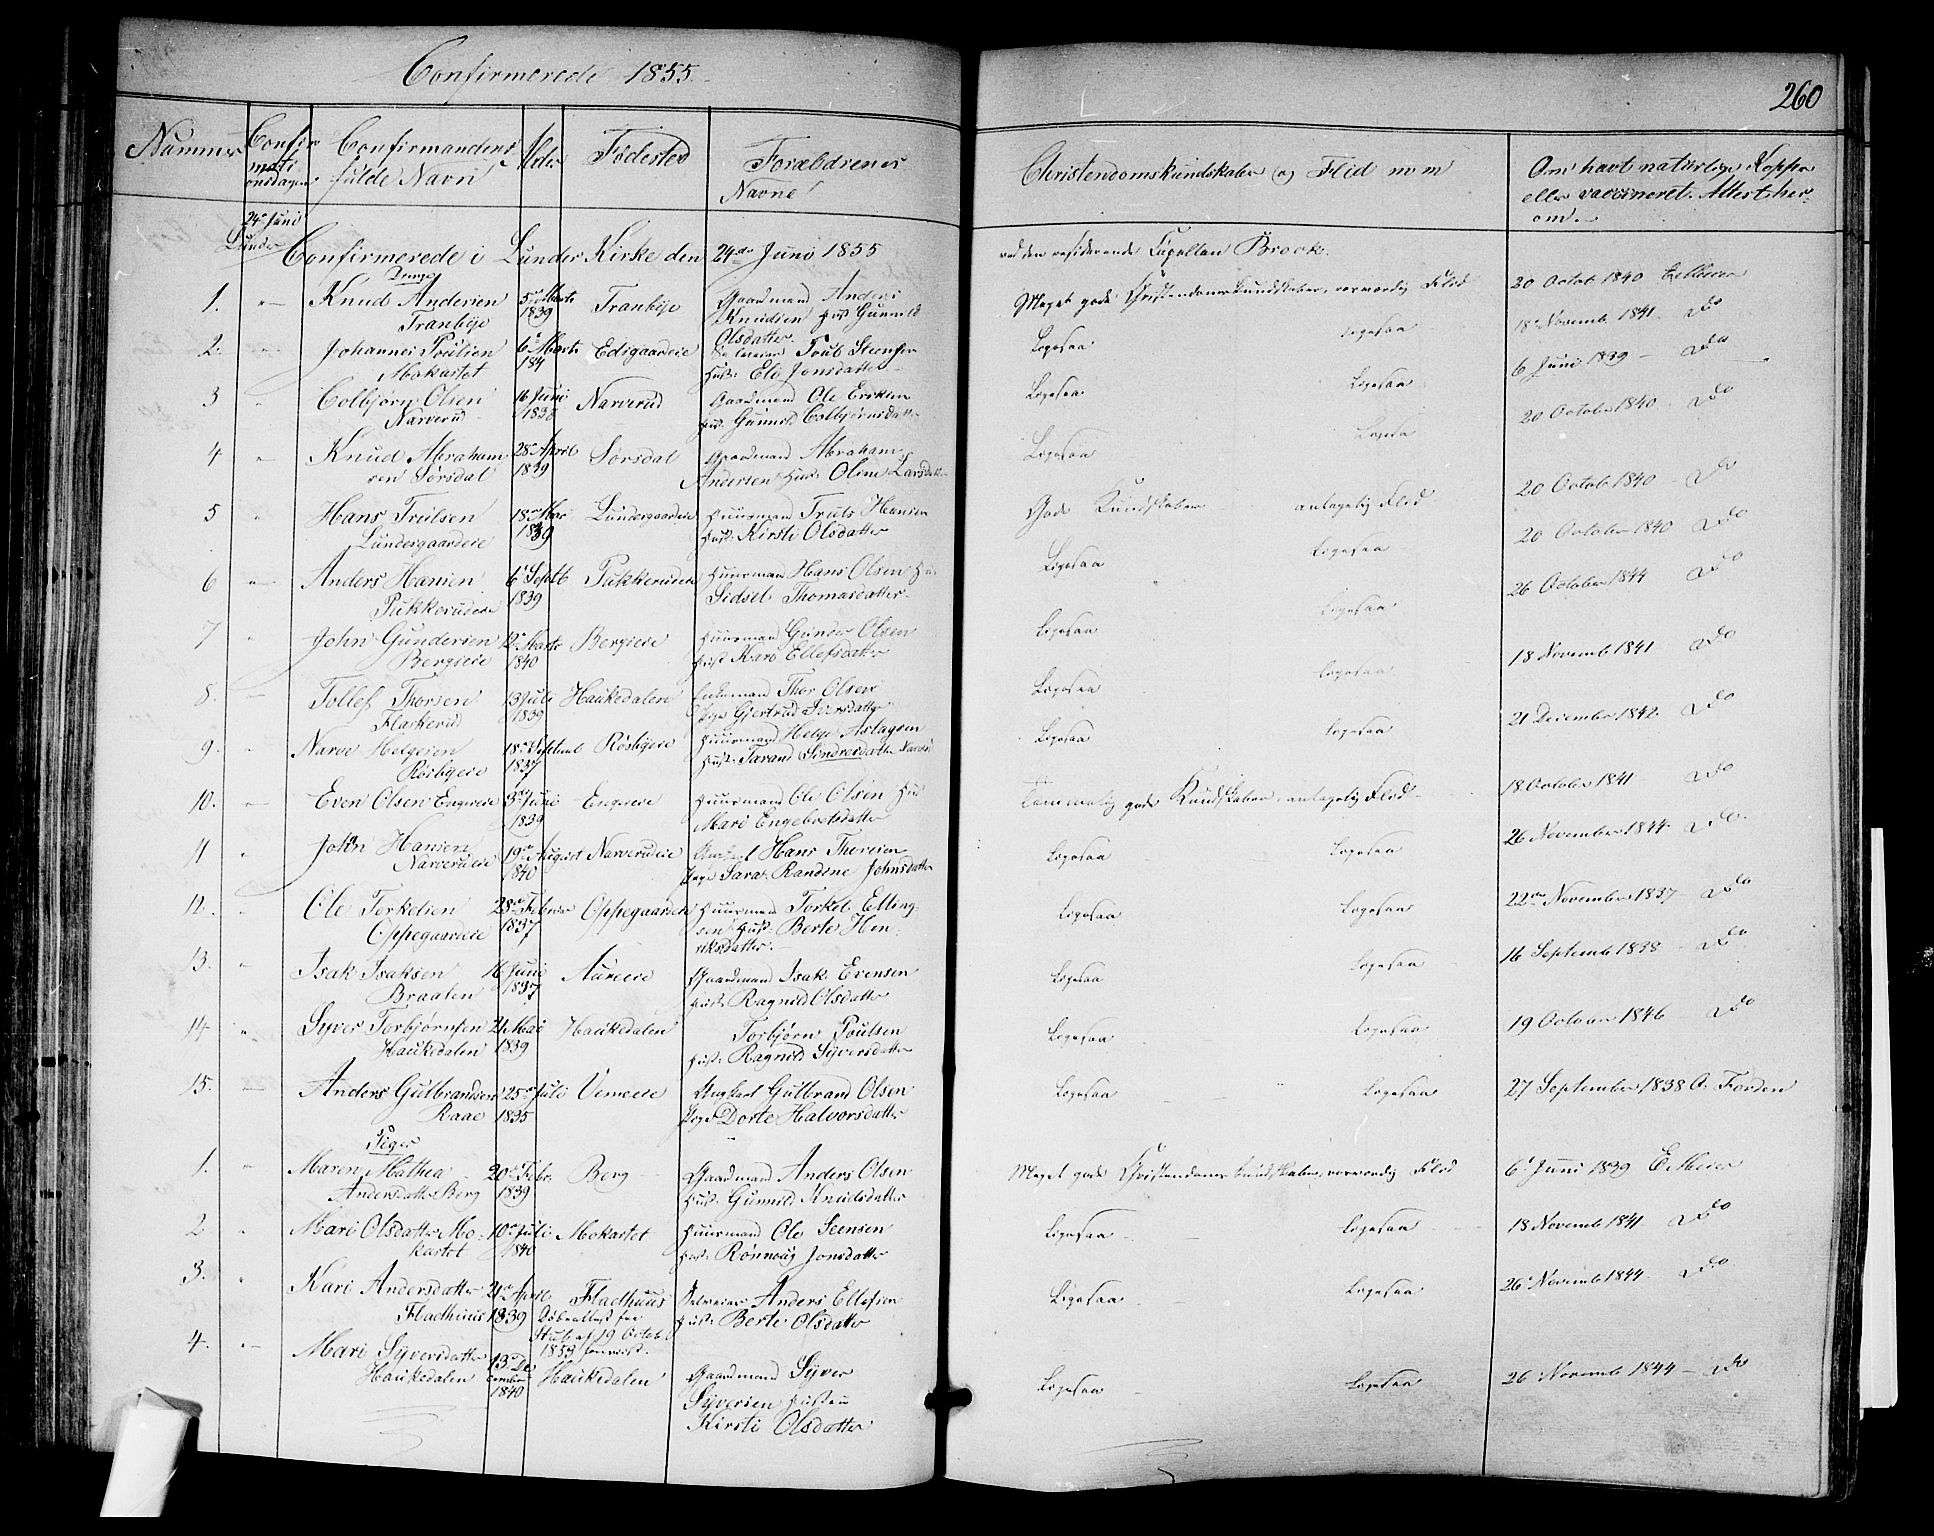 Confirmerede 1855.
260
Nummer
Confirmationsdagen
Confirmandens fulde Navn
Alder
Fødested
Forældrenes Navne
Christendomskundskaber og Flid m m
Om havt naturlige Kopper eller vaccineret. Attest herom.
24de Juni Lunder
Confirmerede i Lunder Kirke den 24de Juni 1855 ved den residerende Capellan Brock.
Drenge
1. Knud Andersen Tranbye 5te Marts 1839 Tranbye Gaardmand Anders Knudsen Hust Gunnild Olsdatter Meget gode Christendomskundskaber, Flid 20 Octob 1840
2. Johannes Poulsen Mokastet 6te Marts 184 Edsgaardeie Poul Steensen Hust: Eli Jonsdatter Ligesaa Ligesaa 18 Novemb 1841 Do
3 Colbjørn Olsen Narverud 16 Juni 1838 Narverud Gaardmand Ole Eriksen Hust: Gunnild Colbjørnsdatter Ligesaa Ligesaa 6 Juni 1839 Do
4 Knud Abrahamsen Sørsdal 28de April 1839 Sørsdal Gaardmand Abraham Andersen Hust: Oline Larsdatter Ligesaa Ligesaa 20 October 1840 Do
5 Hans Trulsen Lundergaardeie 18de Mai 1839 Lundergaardeie Huusmand Truls Hansen Hust: Kirsti Olsdatter Gode Kundskaber antagelig Flid 20 Octob 1840 Do
6 Anders Hansen Pukkerudeie 6te Septb 1839 Pukkerudeie Huusmand Hans Olsen Hu: Sidsel Thomasdatter Ligesaa Ligesaa 20 October 1840 Do
7 John Gundersen Bergseie 12te Marts 1840 Bergseie Huusmand Gunder Olsen Hust Kari Ellefsdatter Ligesaa Ligesaa 26 October 1844 Do
8. Tollef Thorsen Flaskerud 13 Juli 1839 Haukedalen Enkemand Thor Olsen Pige Gjertrud Iversdatter Ligesaa Ligesaa 18 Novemb 1841 Do
9. Narve Helgesen Rosbyeie 18de Septemb 1837 Rosbyeie Huusmand Helge Aslagsen Hust: Tarand Sindresdatter Ligesaa Ligesaa 21 December 1842 Do
10. Even Olsen Engereie 3die Juni 1839 Engereie Huusmand Ole Olsen Hu Mari Engebretsdatter Temmelig gode Kundskaber, antagelig Flid 18 October 1841 Do
11 John Hansen Narverudeie 19de August 1840 Narverudeie Ungkarl Hans Thoresen Pige Sara Randine Johnsdatter Ligesaa Ligesaa 26 November 1844 Do.
12. Ole Torkelsen Oppegaardeie 28de Februar 1837 Oppegaardeie Huusmand Torkel Ellingsen Hust: Berte Henriksdatter. Ligesaa Ligesaa 22de November 1837 Do
13. Isak Isaksen Braaten 16 Juni 1837 Aureeie Gaardmand Isak Evensen Hust: Ragnild Olsdatter Ligesaa Ligesaa 16 Septemb 1838 Do
14 Syver Torbjørnsen Haukedalen 21 Mai 1839 Haukedalen Torbjørn Poulsen Hust: Ragnild Syversdatter Ligesaa Ligesaa 19 October 1846 Do
15. Anders Gulbrandsen Raae 25de Juli 1835 Vemeeie Ungkarl Gulbrand Olsen Pige Dorte Halvorsdatter Ligesaa Ligesaa 27 September 1838
Piger
1. Maren Mathea Andersdatter Berg 20de Febr. 1839 Berg Gaardmand Anders Olsen Hust: Gunnild Knudsdatter Meget gode Christendomskundskaber, Flid 6 Juni 1839
2 Mari Olsdatter Mokastet 10de Juli 1840 Mokastet Huusmand Ole Steensen Hust: Rønnaug Jonsdatter Ligesaa Ligesaa 18 Novemb 1841 Do
3. Kari Andersdatter Fladhuus 21de April 1839 Fladhuus Anders Ellefsen Hust: Berte Olsdatter Ligesaa Ligesaa 26 Novemb 1844 Do
4. Mari Syversdatter Haukedalen 13de December 1840 Haukedalen Gaardmand Syver Syversen Hustru Kirsti Olsdatter Ligesaa Ligesaa 26 Novemb 1844 Do